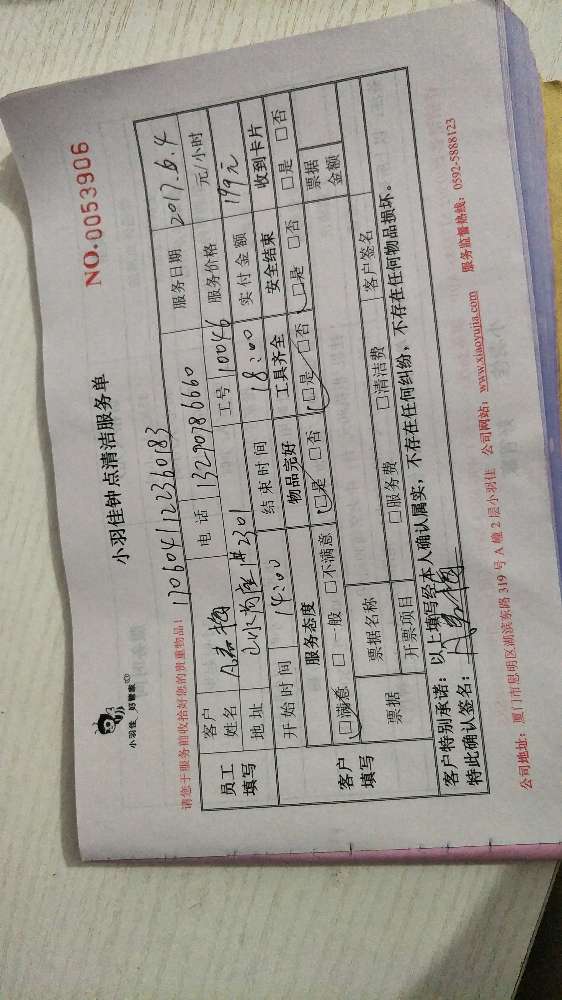 小羽佳 好管家
小羽佳钟点清洁服务单
NO.0053906
请您于服务前收拾好您的贵重物品! 170604112360183
员工填写 客户姓名 电话 13290786660 服务日期 2017.6.4
地址 工号 110046 服务价格 元/小时
开始时间 14:00 结束时间 18:00 实付金额 179元
客户填写 服务态度 物品完好 工具齐全 安全结束 收到卡片
□满意 □一般 □不满意 □是 □否 □是 □否 □是 □否 □是 □否
票据 票据名称 □服务费 □清洁费 票据金额
开票项目 客户签名
客户特别承诺: 以上填写经本人确认属实,不存在任何纠纷,不存在任何物品损坏。
特此确认签名:
公司地址: 厦门市思明区湖滨东路 319 号 A 幢 2 层小羽佳 公司网站: www.xiaoyujia.com 服务监督热线: 0592-5888123